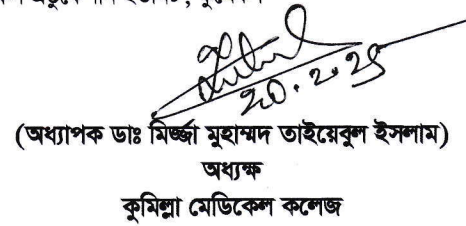 20.2.25
(অধ্যাপক ডাঃ মির্জ্জা মুহাম্মদ তাইয়েবুল ইসলাম)
অধ্যক্ষ
কুমিল্লা মেডিকেল কলেজ